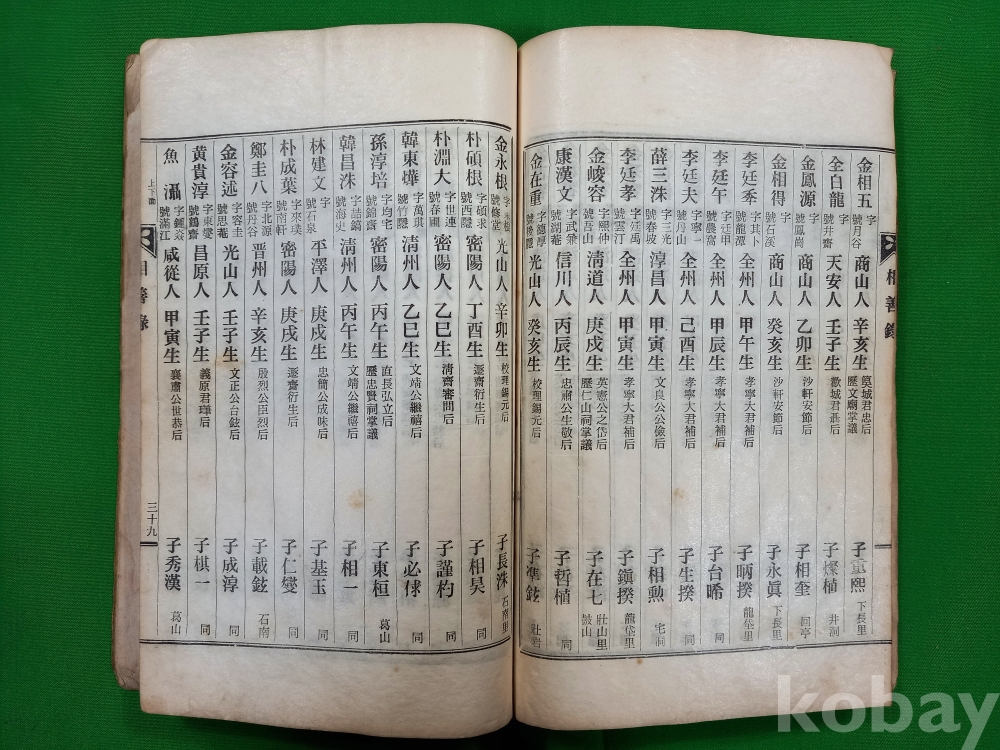 相善錄
金相五 字 號月谷 商山人 辛亥生 歷文廟掌議 子重熙 下長里
全白龍 字 號井齋 天安人 壬子生 歡城君 后 子燦植 井洞
金鳳源 字 號鳳崗 商山人 乙卯生 沙軒安節后 子相奎 回亭
金相得 字 號石溪 商山人 癸亥生 沙軒安節后 子永眞 下長里
李廷秀 字其卜 號龍潭 全州人 甲午生 孝寧大君補后 子昞揆 龍垡里
李廷午 字廷甲 號農窩 全州人 甲辰生 孝寧大君補后 子台晞 同
李廷夫 字寧一 號丹山 全州人 己酉生 孝寧大君補后 子生揆 同
薛三洙 字三光 號春坡 淳昌人 甲寅生 文良公公儉后 子相勳 宅洞
李廷孝 字廷禹 號雲汀 全州人 甲寅生 孝寧大君補后 子鎭揆 龍垡里
金峻容 字熙仲 號吾山 清道人 庚戌生 英憲公之岱后 歷仁山祠掌議 子在七 壯山里 鼓山
康漢文 字武兼 號湖菴 信川人 丙辰生 忠肅公生敬后 子哲植 同
金在重 字德學 光山人 癸亥生 校理錫元后 子準鉉 壯岩
金永根 號修堂 光山人 辛卯生 校理錫元后 子長洙 石南里
朴碩根 字碩求 號西隱 密陽人 丁酉生 遯齋衍生后 子相昊 同
朴淵大 字世連 號春圃 密陽人 乙巳生 清齋審問后 子謹杓 同
韓東燁 字萬琪 號竹隱 清州人 乙巳生 文靖公繼禧后 子必俅 同
孫淳培 字均宅 號錦齋 密陽人 丙午生 直長弘立后 歷忠賢祠掌議 子東桓 葛山
韓昌洙 字喆鎬 號海史 清州人 丙午生 文靖公繼禧后 子相一 同
林建文 字 號石泉 平澤人 庚戌生 忠簡公成味后 子基玉 同
朴成葉 字來璞 號南軒 密陽人 庚戌生 遯齋衍生后 子仁燮 同
鄭圭八 字北源 號丹谷 晋州人 辛亥生 殷烈公臣烈后 子載鉉 石南
金容述 字容圭 號思菴 光山人 壬子生 文正公台鉉后 子成淳 同
黃貴淳 字東燮 號鶴齋 昌原人 壬子生 義原君 后 子棋一 同
魚灄 字鍾焱 號滿江 咸從人 甲寅生 襄肅公世恭后 子秀漢 葛山
相善錄
三十九
kobay